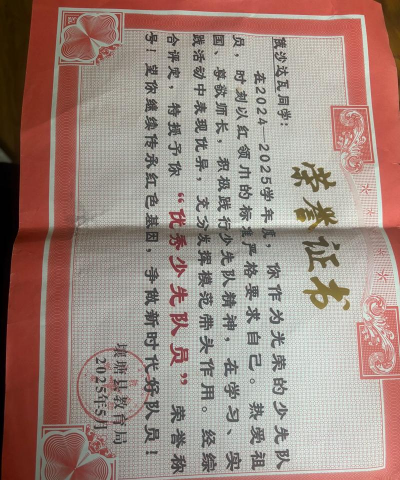 荣誉证书
俄沙达瓦同学:
在2024—2025学年度,你作为光荣的少先队
员,时刻以红领巾的标准严格要求自己。热爱祖
国、尊敬师长,积极践行少先队精神,在学习、实
践活动中表现优异,充分发挥模范带头作用。经综
合评定,特授予你“优秀少先队员”荣誉称
号!望你继续传承红色基因,争做新时代好队员!
壤塘县教育局
2025年5月